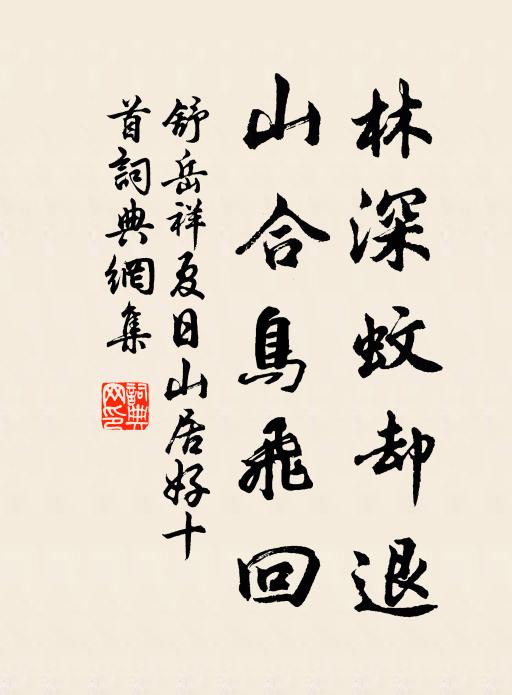 林深蚊却退
山合鳥飛回
舒岳祥夏日山居好十
首詞典網集
詞典
网印